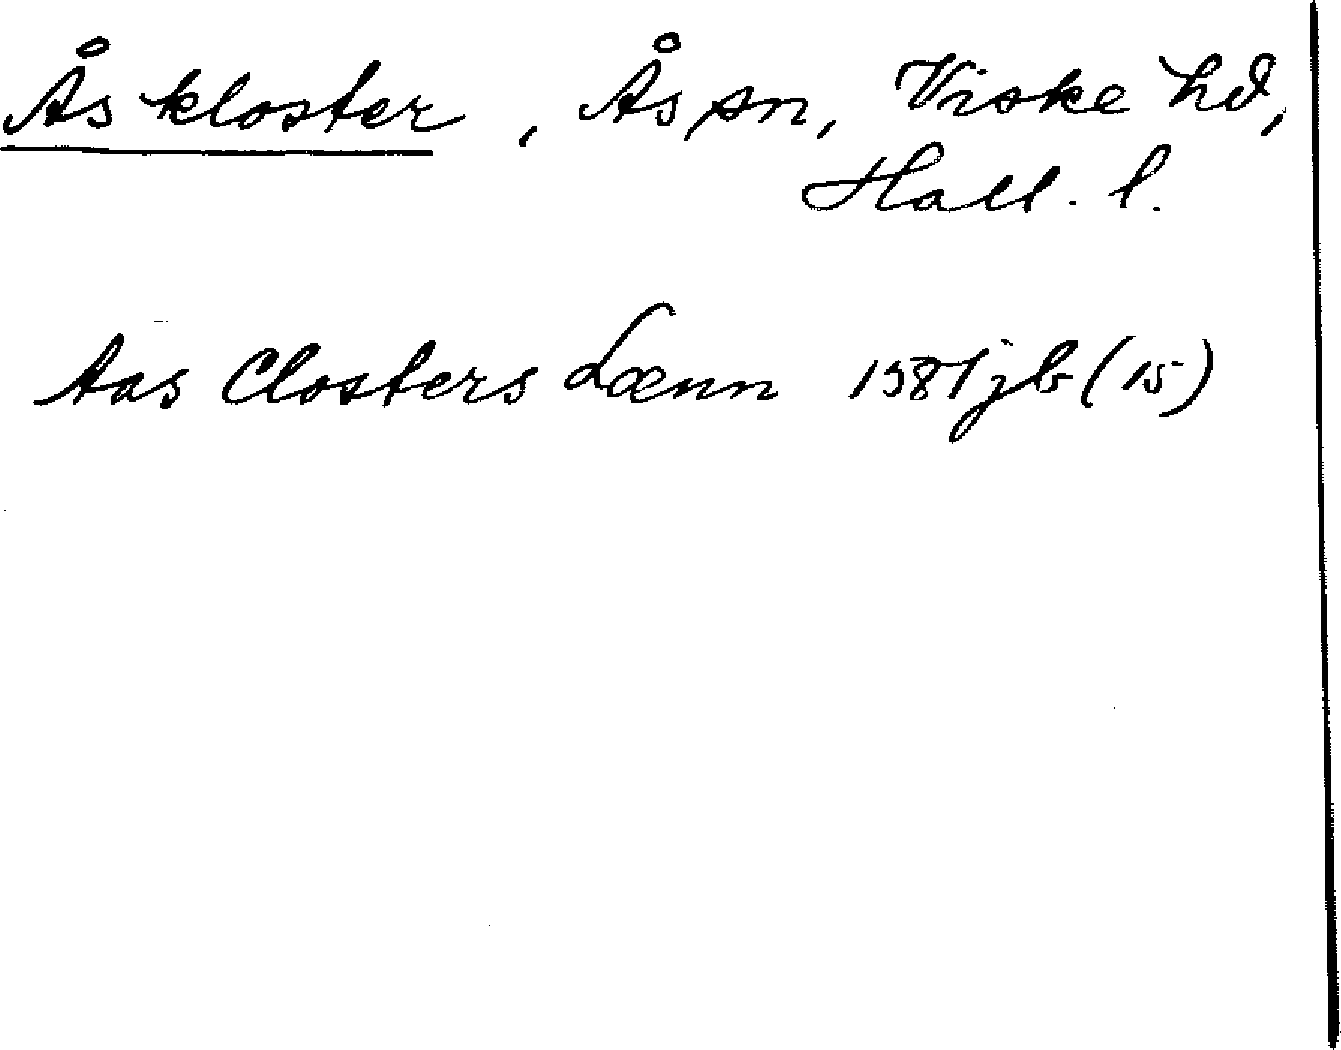 Ås kloster, Ås sn, Viske hd,
Hall. l.
Aas Closters Lænn 1581 jb (15)